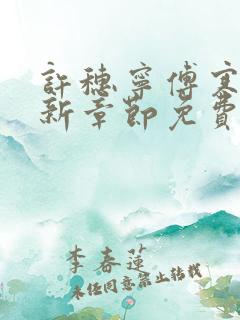 許穗寧傅寒
新章節免費
李春蓮
未經同意禁止轉載